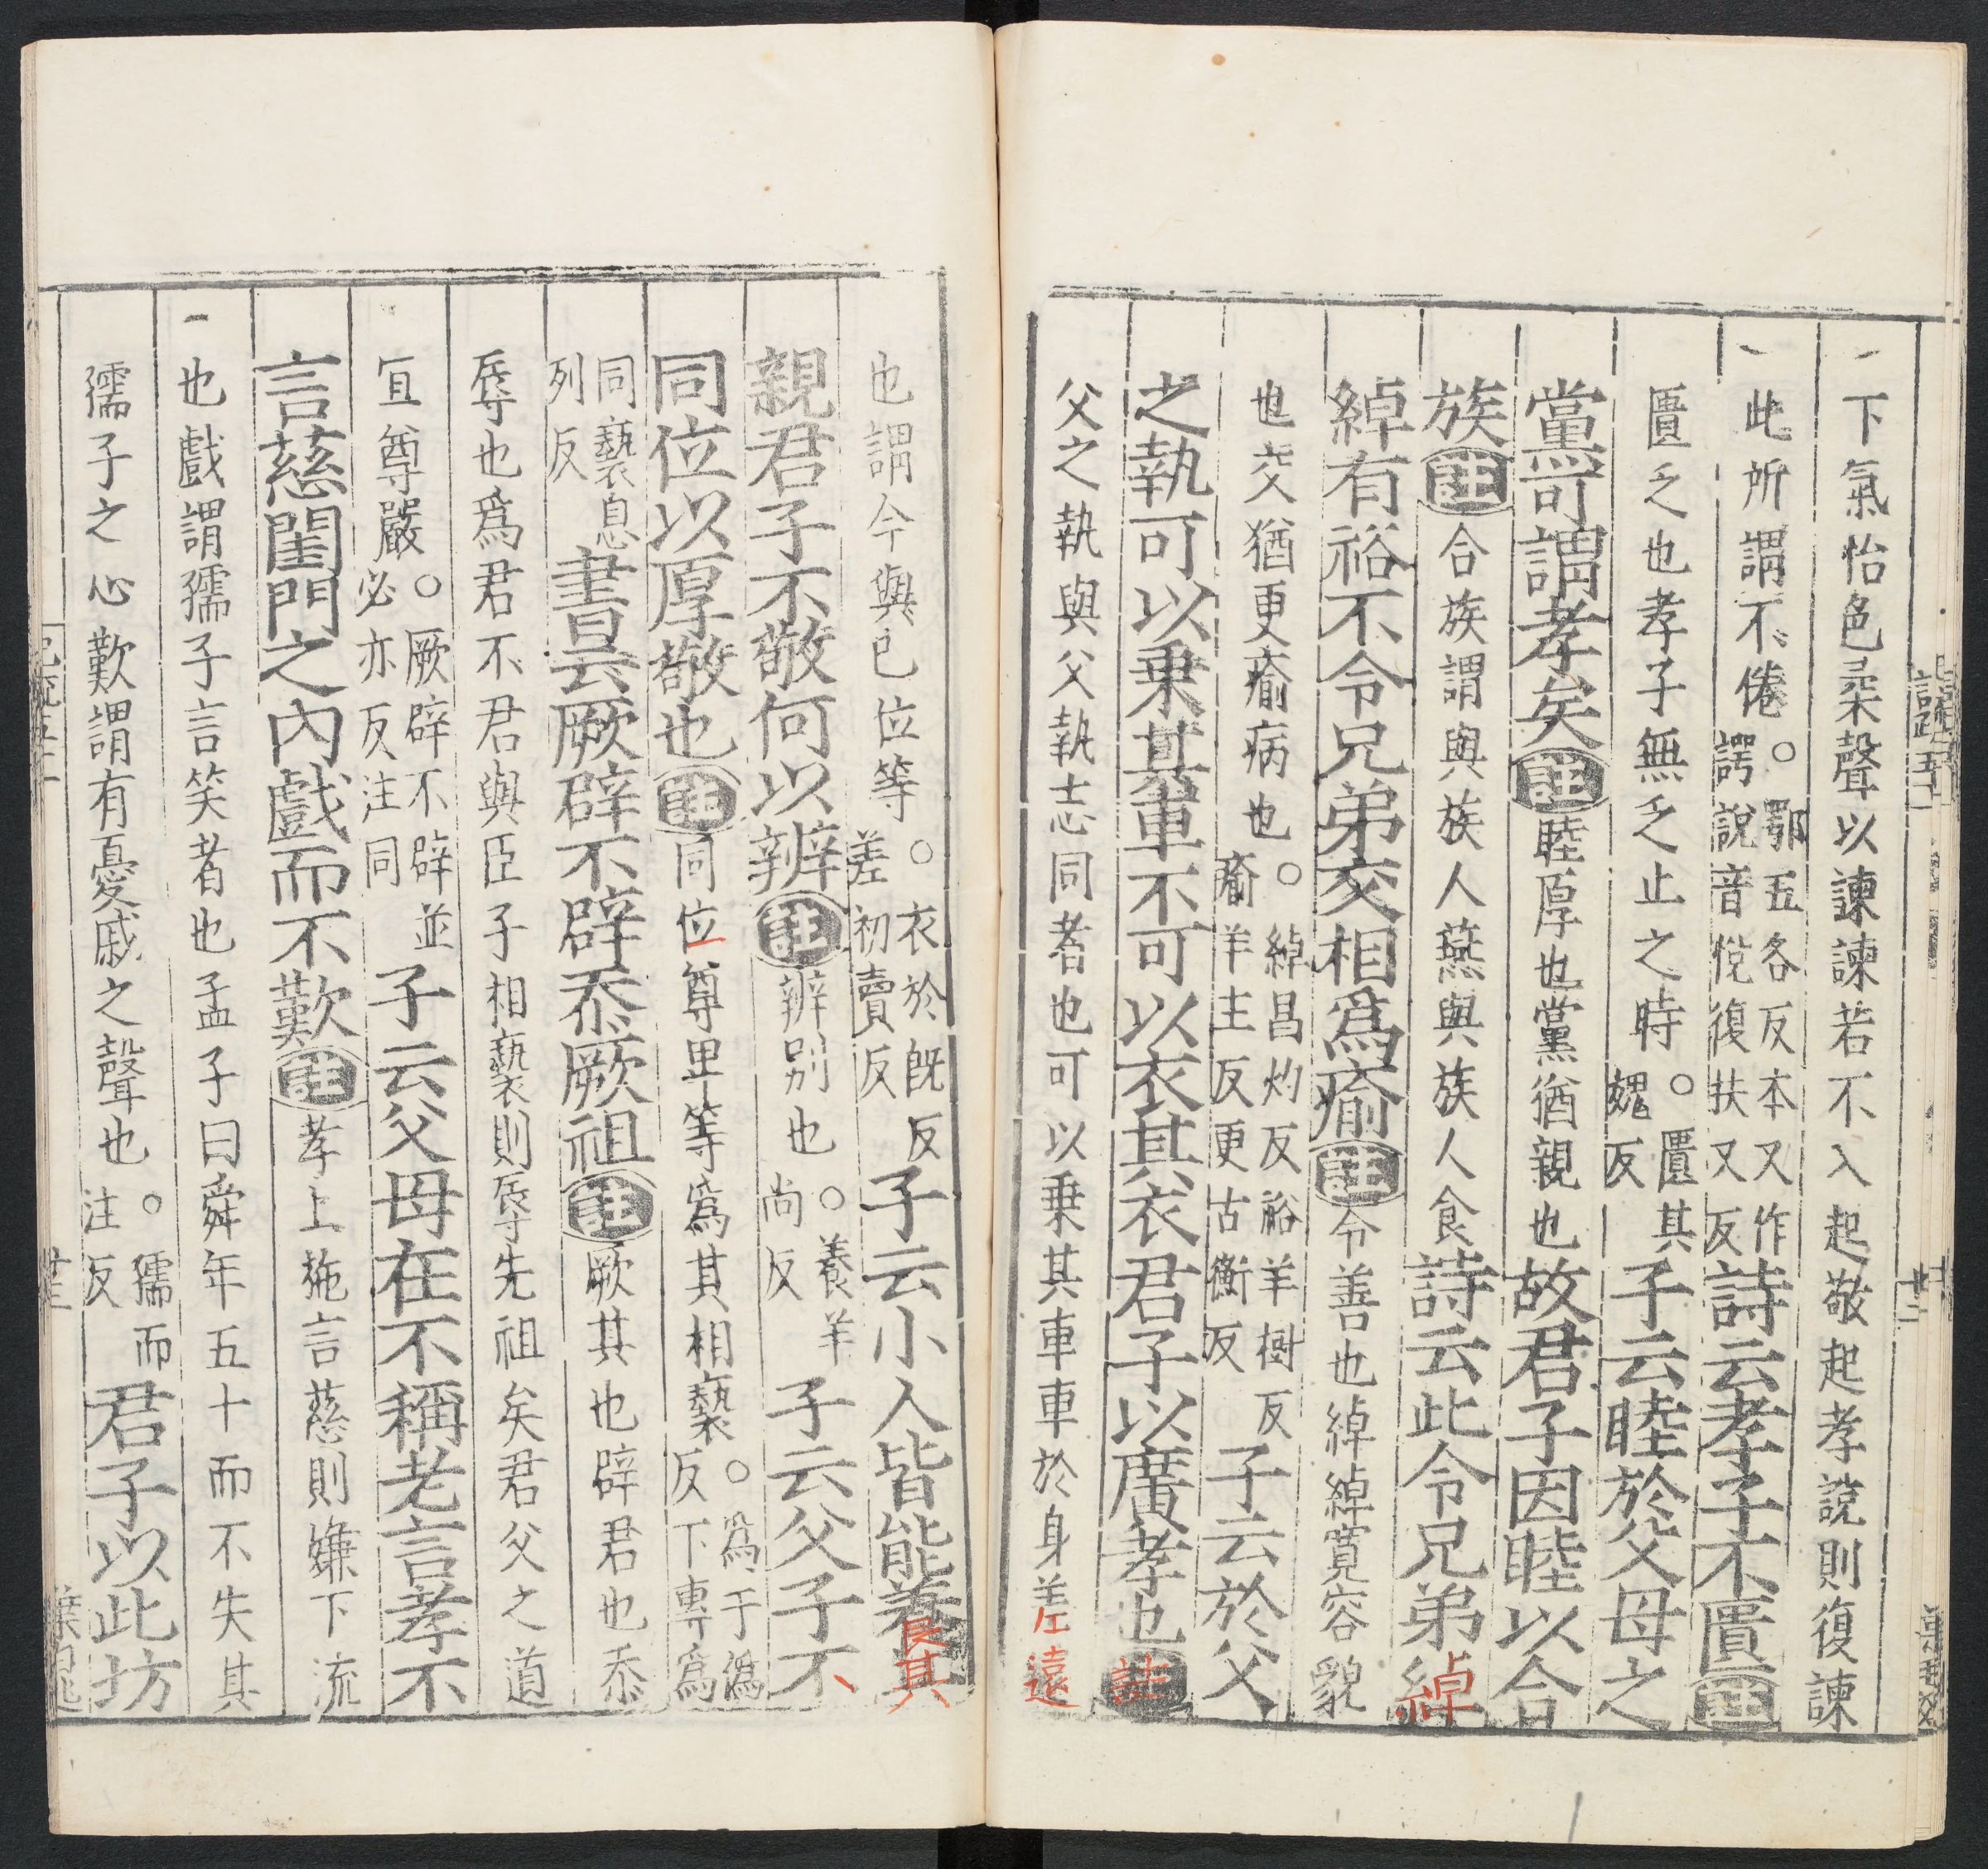 下氣怡色柔聲以諫諫若不入起敬起孝說則復諫
此所謂不倦○鄂五各反本又作諤說音悅復扶又反詩云孝子不匱註
匱乏也孝子無乏止之時○匱其媿反子云睦於父母之
黨可謂孝矣註睦厚也黨猶親也故君子因睦以合
族註合族謂與族人燕與族人食詩云此令兄弟綽
綽有裕不令兄弟交相為瘉註令善也綽綽寬容貌
也交猶更瘉病也○綽昌灼反裕羊樹反瘉羊主反更古衡反子云於父
之執可以乗其車不可以衣其衣君子以廣孝也註
父之執與父執志同者也可以乗其車車於身差遠
也謂今與已位等○衣於既反差初賣反子云小人皆能養其
親君子不敬何以辨註辨別也○養羊尚反子云父子不
同位以厚敬也註同位尊卑等為其相褻○為于偽反下專為
同褻息列反書云厥辟不辟忝厥祖註厥其也辟君也忝
辱也為君不君與臣子相褻則辱先祖矣君父之道
宜尊嚴○厥辟不辟並必亦反注同子云父母在不稱老言孝不
言慈閨門之內戲而不歎註孝上施言慈則嫌下流
也戲謂孺子言笑者也孟子曰舜年五十而不失其
孺子之心歎謂有憂戚之聲也○孺而注反君子以此坊